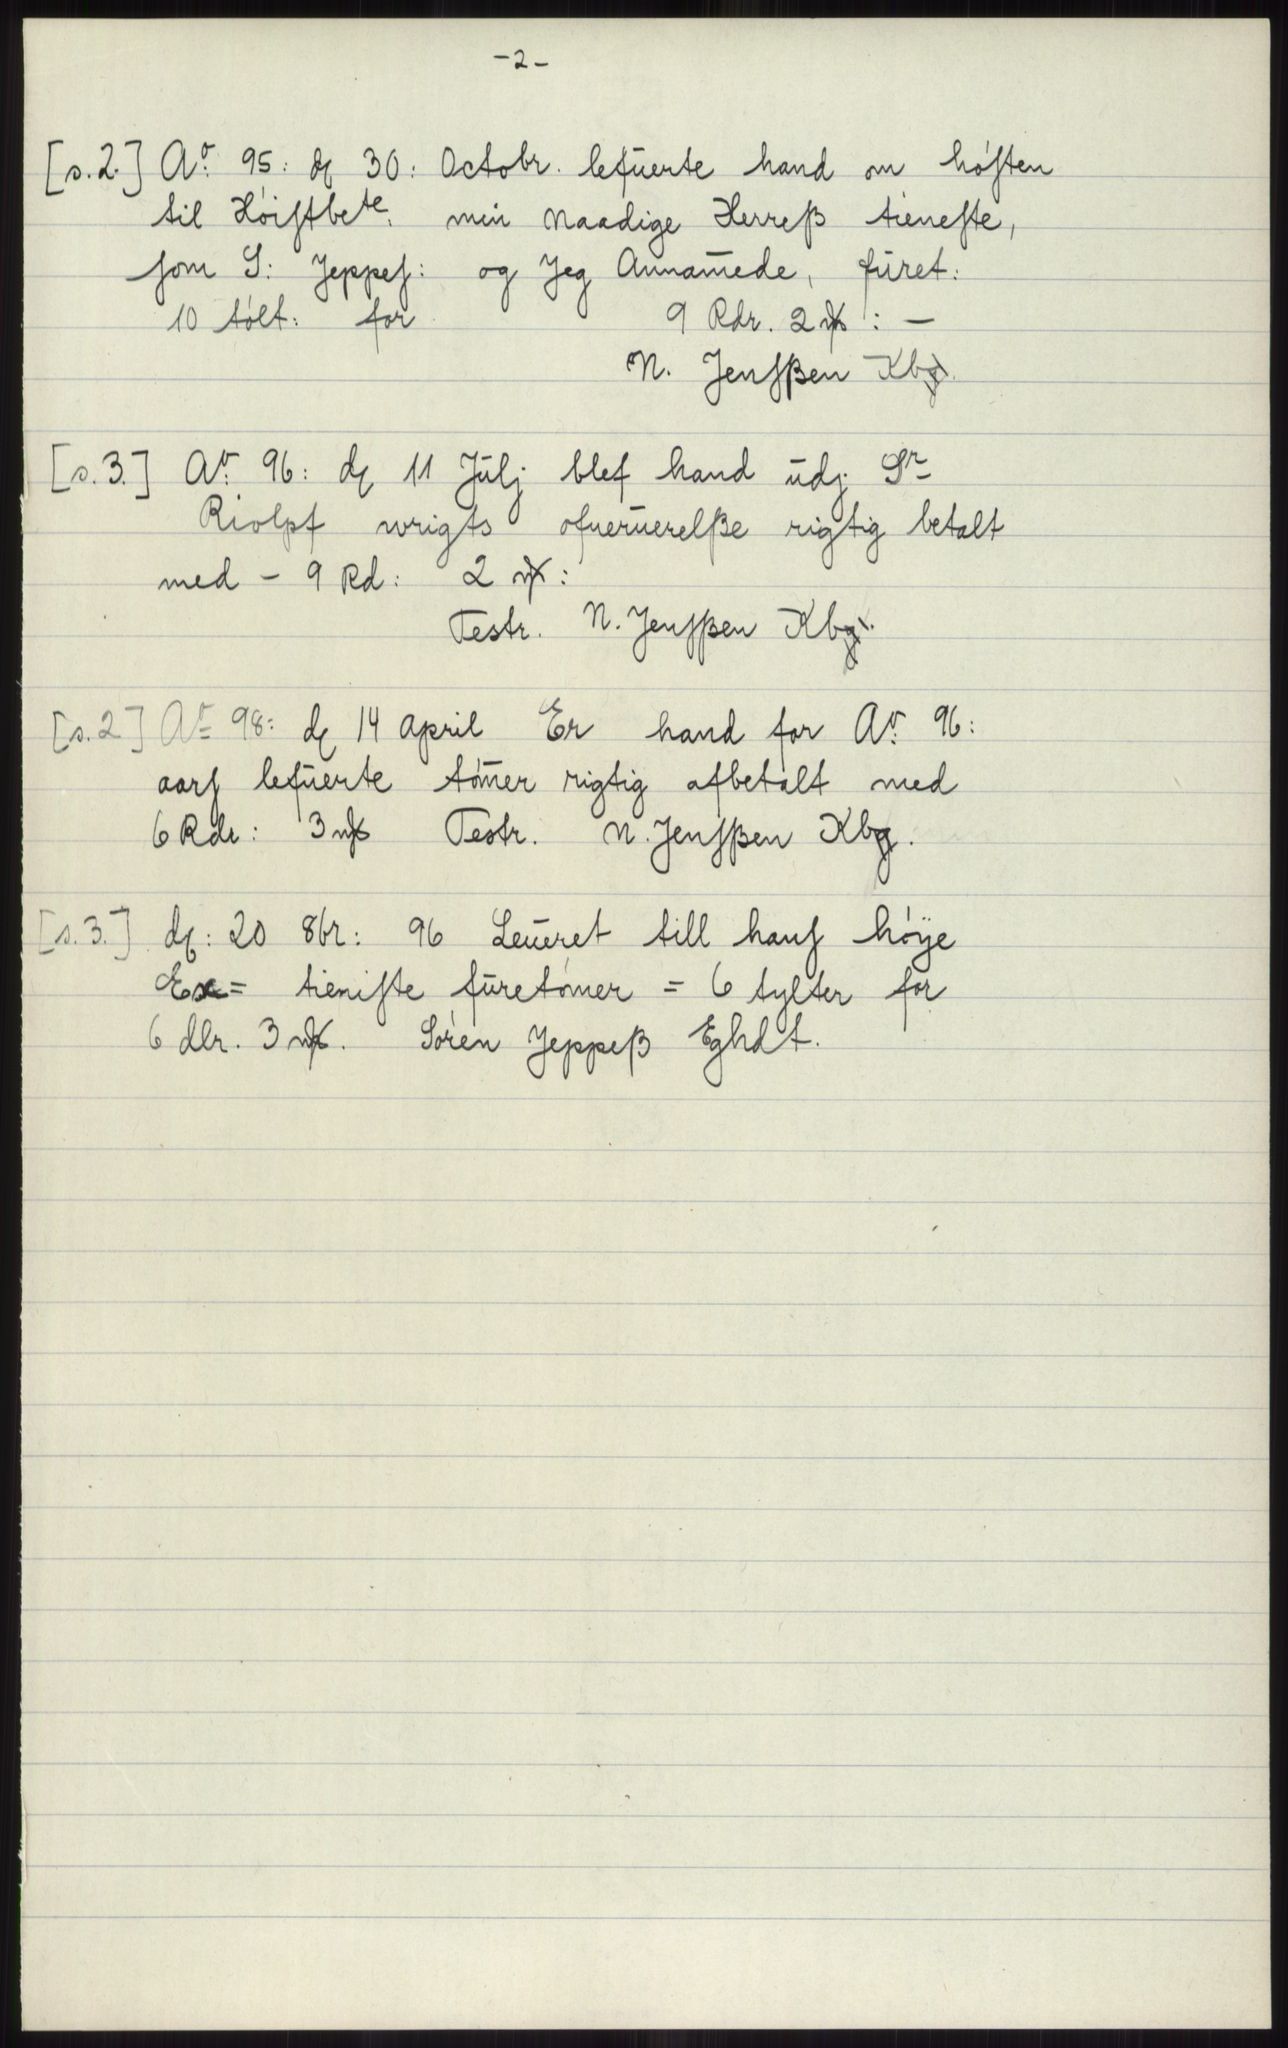 -2-
[s.2.] Aº 95: dɟ 30: Octobr. lefuerte hand om høsten
til Høistbete: min Naadige Herreß tieneste,
som S: Jeppeſ: og Jeg Annamede, furet:
10 tølt: for 9 Rdr. 2 mk : —
N. Jensßen Kbg.
[s.3.] Aº 96: dɟ 11 Julj blef hand udj Sr
Riolpf wrigts ofueruerelße rigtig betalt
med - 9 Rd: 2 mk:
Testr. N. Jensßen Kbg.
[s.2] Aº 98: dɟ 14 april Er hand for Aº 96:
aars lefuerte tømer rigtig afbetalt med
6 Rdr: 3 mk Testr. N. Jensßen Kbg.
[s.3.] dɟ: 20 8br: 96 Leueret till hans høÿe
Ex= tieniste furetømer = 6 tylter for
6 dlr. 3 mk. Søren Jeppeß Eghdt.